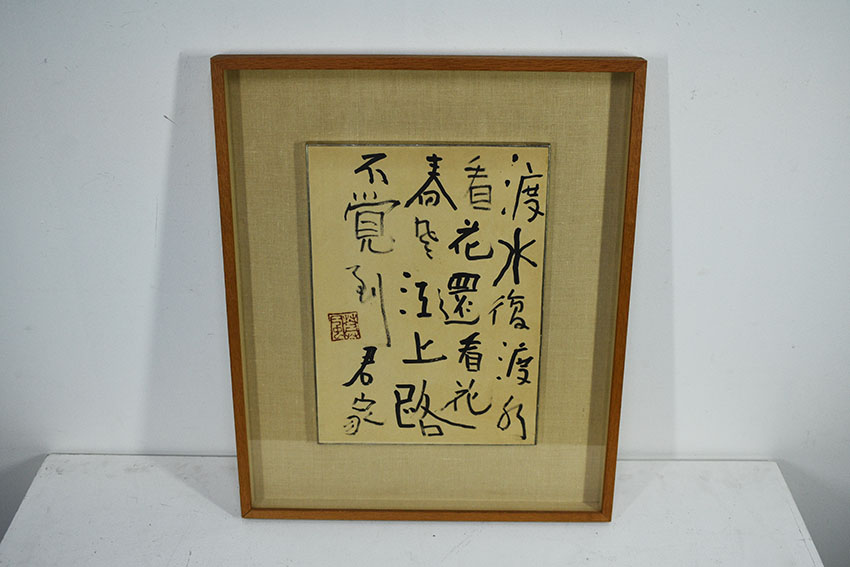 渡水復渡水
看花還看花
春風江上路
不覺到君家